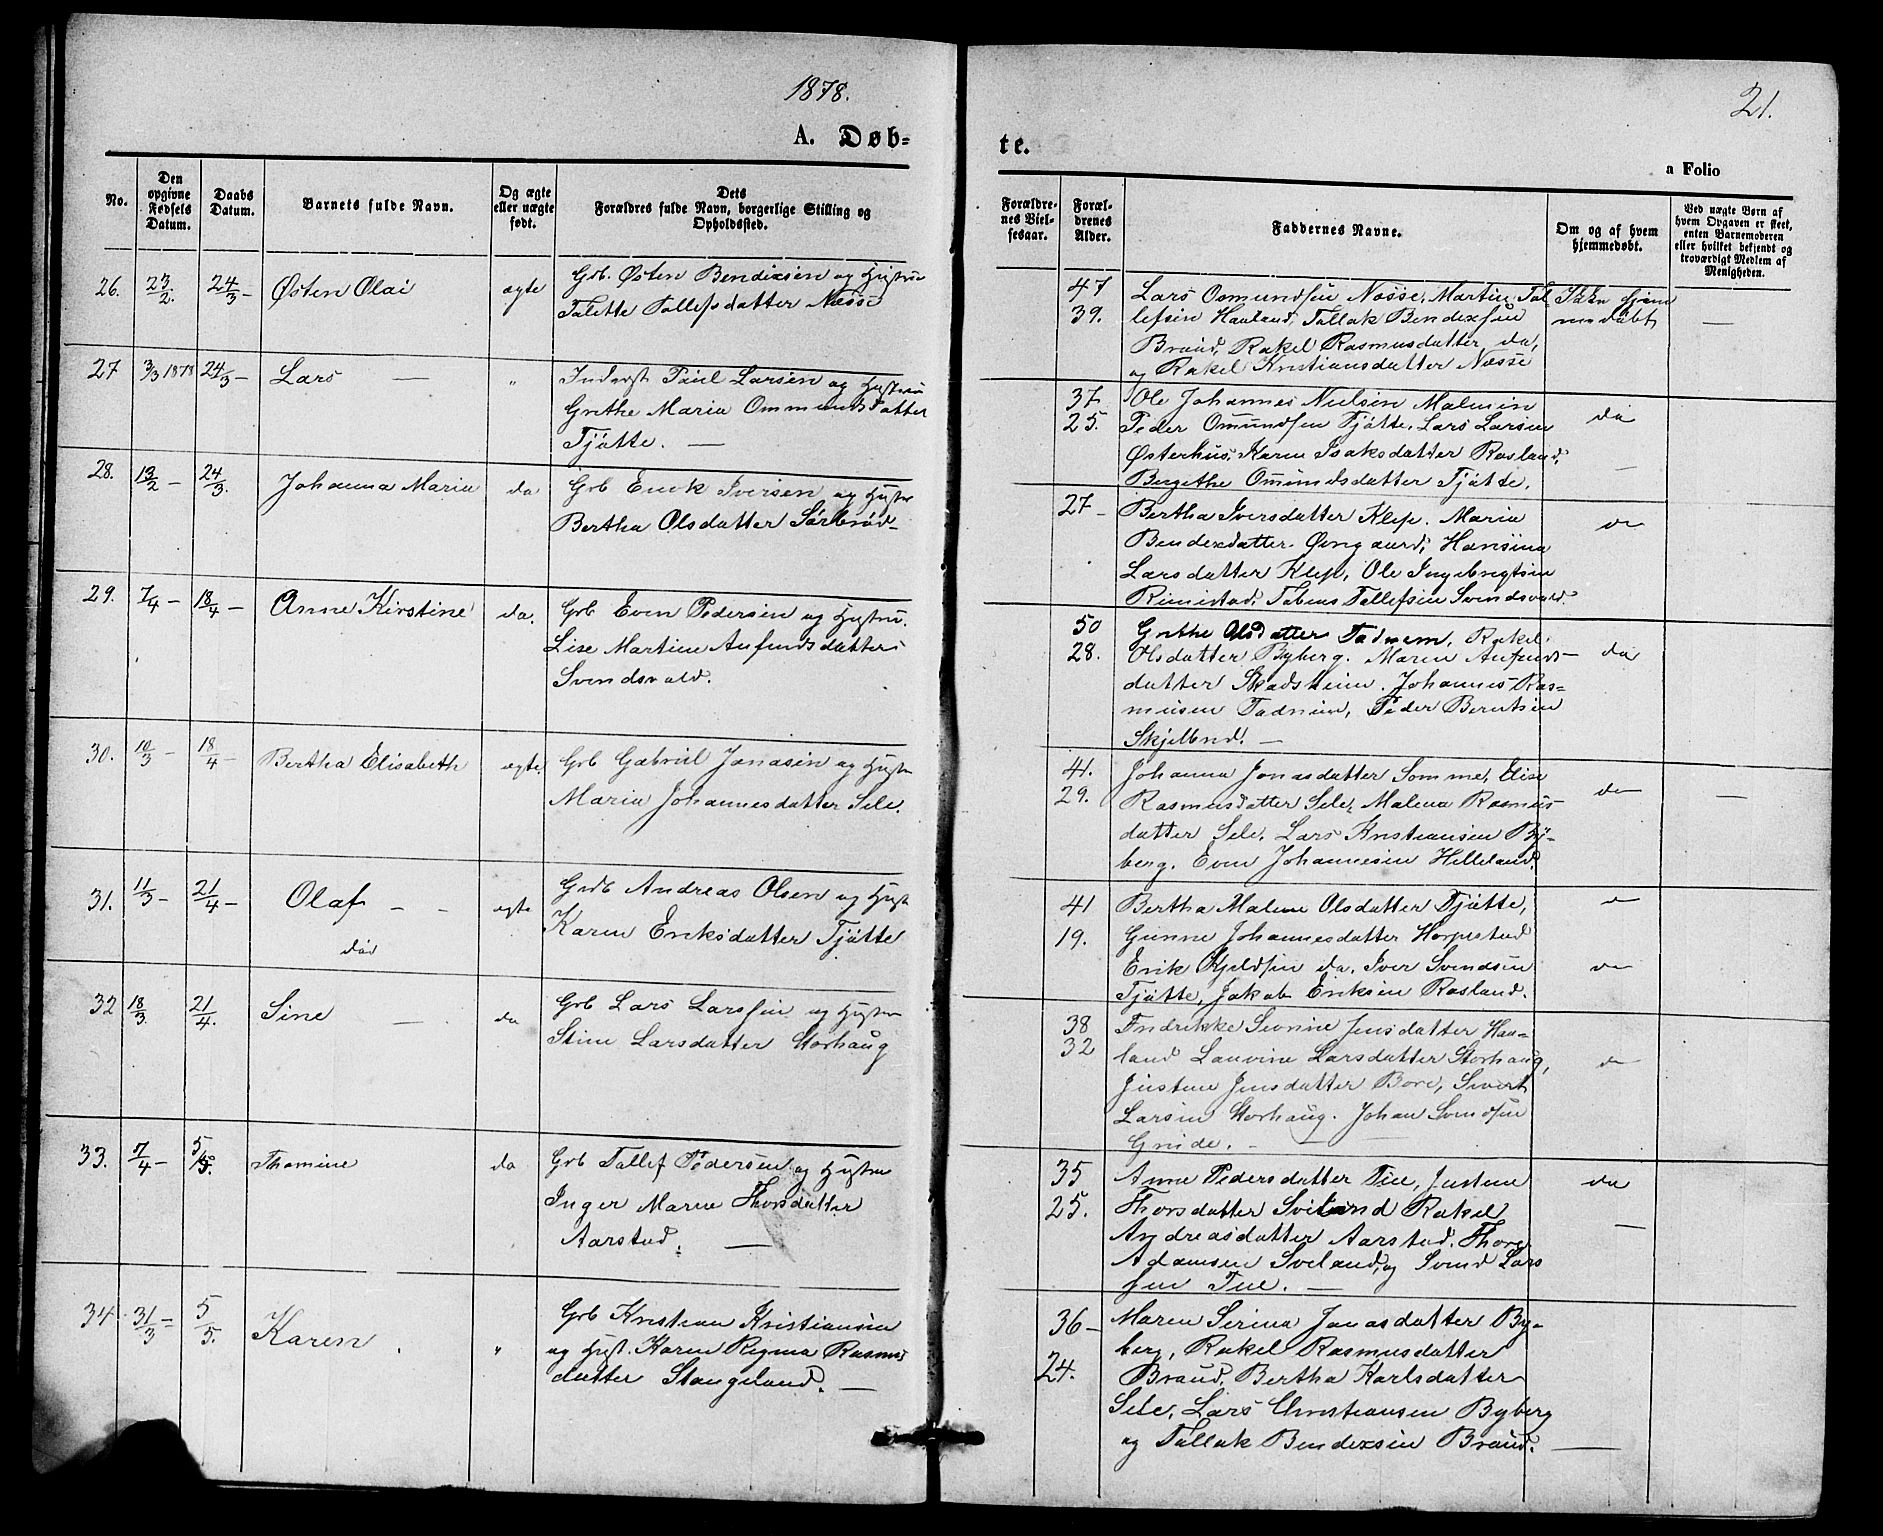 1878.
21.
A. Døb=
te.
a Folio
No.
Den opgivne Fødsels Datum.
Daabs Datum.
Barnets fulde Navn.
Og ægte eller uægte født.
Dets Forældres fulde Navn, borgerlige Stilling og Opholdssted.
Forældrenes Vielsesaar.
Forældrenes Alder.
Faddernes Navne.
Om og af hvem hjemmedøbt.
Ved uægte Børn af hvem Opgaven er skeet, enten Barnemoderen eller hvilket bekjendt og troværdigt Medlem af Menigheden.
26. 23/2. 24/3 - Østen Olai ægte Grb. Østen Bendixsen og Hustru
Talette Tollefsdatter Næsse
47
39.
Lars Osmundsen Næsse, Martin Tol-
lefsen Hauland, Tallak Bendixsen
Braud, Rakel Rasmusdatter da,
og Rakel Kristiansdatter Næsse
Ikke hjem
medøbt
27 3/3 1878 24/3 - Lars — " Inderst Paul Larsen og Hustru
Grethe Maria Ommundsdatter
Tjøtte. —
37
25.
Ole Johannes Nielsen Malmin
Peder Omundsen Tjøtte, Lars Larsen
Østerhus, Karen Isaksdatter Rosland,
Birgithe Omundsdatter Tjøtte.
da
28. 13/2 - 24/3. Johanna Maria da Grb Enok Iversen og Hustr
Bertha Olsdatter Sørbrød-
27 -
Bertha Iversdatter Klep. Maria
Bendexdatter Øxngaard, Hansina
Larsdatter Klep, Ole Ingebregtsen
Rimestad, Tobias Tollefsen Svendsvold.
29. 7/4 - 18/4 - Anne Kirstine da. Grb Even Pedersen og Hustru.
Lise Martine Aufindsdatter
Svendsvold.
50
28.
Grethe Olsdatter Tadnem, Rakel
Olsdatter Byberg. Maren Aufinds-
datter Skadsheim. Johannes Ras=
musen Tadnem, Peder Berntsen
Skjelbred. —
da
30. 10/3 - 18/4 - Bertha Elisabeth ægte Grb Gabriel Jonasen og Hustr
Maria Johannesdatter Sele.
41.
29.
Johanna Jonasdatter Somme, Elise
Rasmusdatter Sele, Malena Rasmus-
datter Sele, Lars Kristiansen By-
berg. Even Johannesen Helleland.
31. 11/3 - 21/4 - Olaf - - ægte Grb Andreas Olsen og Hust
død
Karen Eriksdatter Tjøtte
41
19.
Bertha Malene Olsdatter Tjøtte,
Gunne Johannesdatter Horpestad
Erik Kjeldsen da, Iver Svendsen
Tjøtte, Jakob Eriksen Rosland.
32 18/3 21/4. Sine — da Grb Lars Larssen og Hustru
Stine Larsdatter Storhaug
38
32
Fredrikke Sevrine Jensdatter Hau-
land Lauvine Larsdatter Storhaug,
Justine Jensdatter Bore, Sivert
Larsen Storhaug. Johan Svendsen
Grude. -
33. 7/4 - 5/5. Thomine da Grb Tollef Pedersen og Hustru
Inger Maren Thorsdatter
Aarstad. —
35
25.
Anne Pedersdatter Tue, Justine
Thorsdatter Sviland Rakel
Andreasdatter Aarstad. Thore
Adamsen Sveland, og Svend Lars
sen Tue. —
da
34 31/3 - 5/5. Karen . " Grb Kristian Kristiansen
og Hust. Karen Regina Rasmus
datter Stangeland. —
36 -
24.
Maren Serina Jonasdatter By-
berg, Rakel Rasmusdatter
Braud, Bertha Karlsdatter
Sele, Lars Christiansen Byberg
og Tallak Bendexsen Braud.